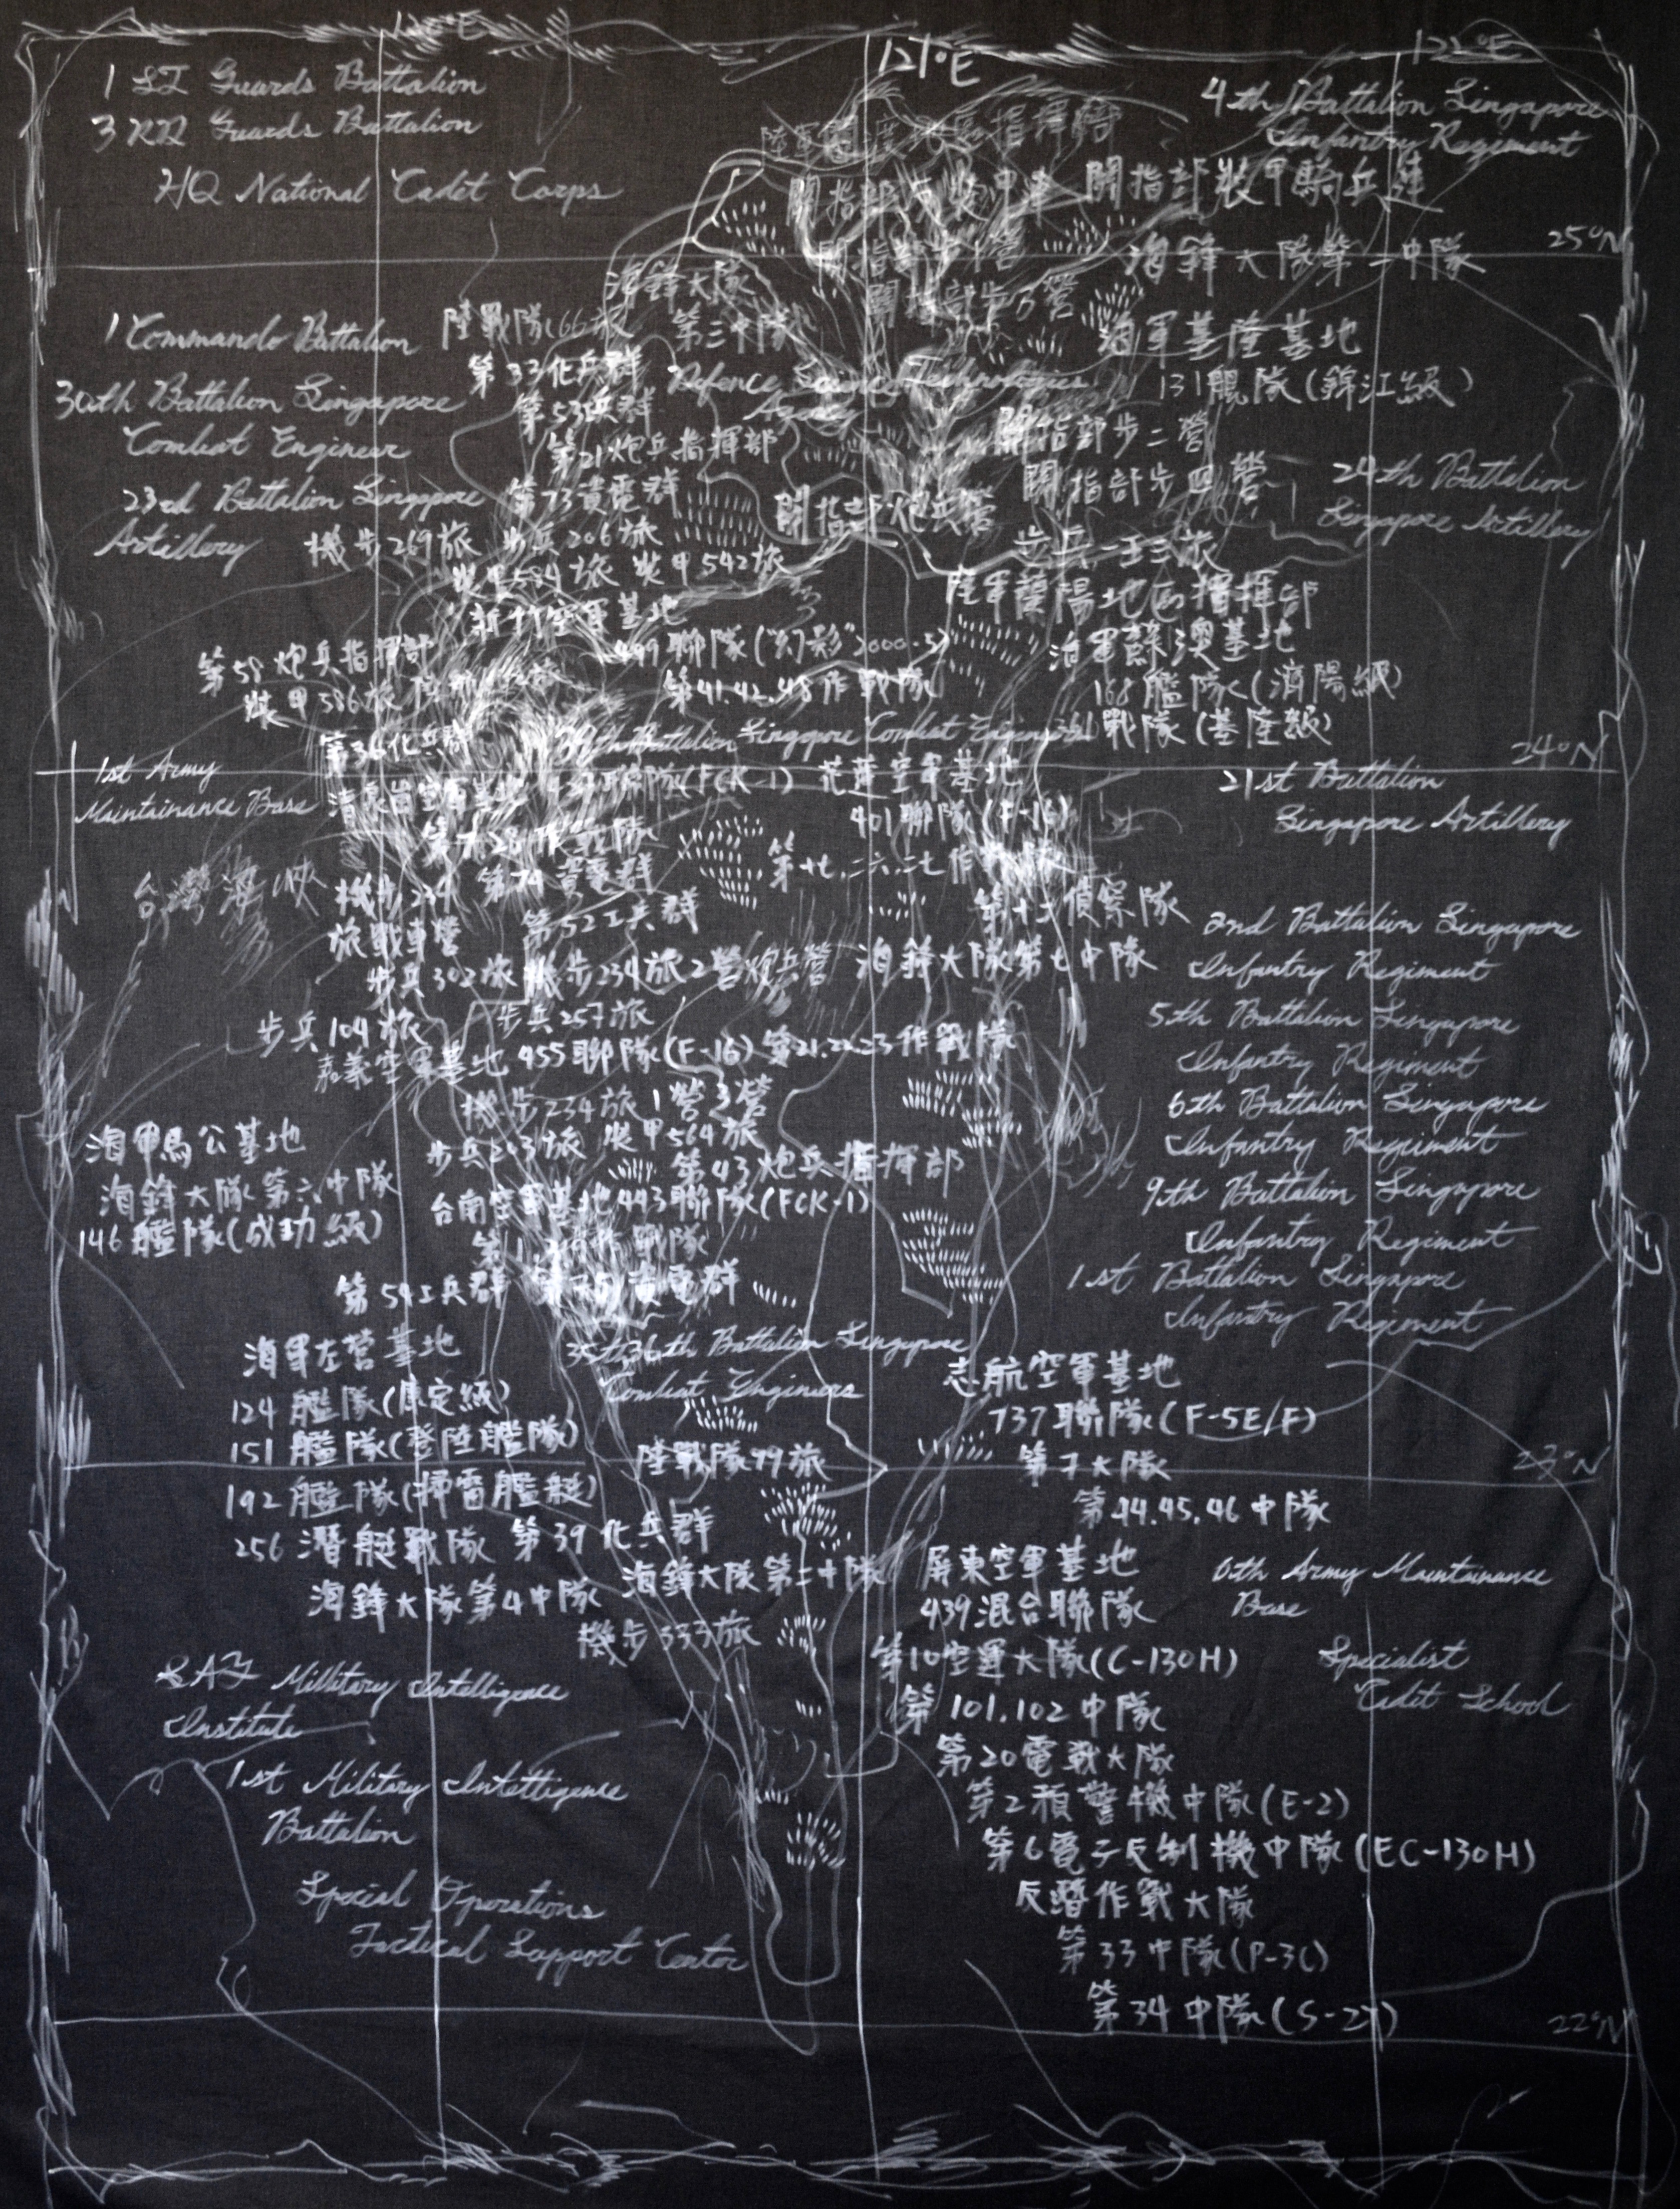 120°E
121°E
122°E
1 SI Guards Battalion
3 RD Guards Battalion
HQ National Cadet Corps
4th Battalion Singapore
Infantry Regiment
開指部裝甲騎兵連
25°N
海鋒大隊第一中隊
海鋒大隊
第三中隊
陸戰隊66旅
海軍基隆基地
131艦隊(錦江級)
1 Commando Battalion
第33化兵群
Defence Science Technologies
Agency
30th Battalion Singapore
Combat Engineer
第53工兵群
第21炮兵指揮部
關指部步二營
關指部步四營
24th Battalion
Singapore Artillery
23rd Battalion Singapore
Artillery
第73資電群
關指部炮兵營
機步269旅 步兵206旅
裝甲584旅 裝甲542旅
步兵一五三旅
陸軍蘭陽地區指揮部
新竹空軍基地
499聯隊("幻影"2000-5)
第41.42.48作戰隊
海軍蘇澳基地
168艦隊(濟陽級)
戰隊(基隆級)
第58炮兵指揮部
裝甲586旅
第36化兵群
Battalion Singapore Combat Engineers
24°N
1st Army
Maintainance Base
清泉崗空軍基地 427聯隊(FCK-1) 花蓮空軍基地
401聯隊(F-16)
21st Battalion
Singapore Artillery
台灣海峽
機步234
旅戰車營
第74資電群
第52工兵群
第十二偵察隊
2nd Battalion Singapore
Infantry Regiment
步兵302旅 機步234旅2營炮兵營 海鋒大隊第七中隊
步兵104旅 步兵257旅
嘉義空軍基地 455聯隊(F-16) 第21.22.23作戰隊
5th Battalion Singapore
Infantry Regiment
機步234旅1營3營
步兵203旅 裝甲564旅
第43炮兵指揮部
6th Battalion Singapore
Infantry Regiment
海軍馬公基地
海鋒大隊第六中隊
146艦隊(成功級)
台南空軍基地443聯隊(FCK-1)
9th Battalion Singapore
Infantry Regiment
第54工兵群 第75資電群
1st Battalion Singapore
Infantry Regiment
海軍左營基地
124艦隊(康定級)
151艦隊(登陸艦隊)
192艦隊(掃雷艦艇)
256潛艇戰隊 第39化兵群
海鋒大隊第4中隊
35th 36th Battalion Singapore
Combat Engineers
陸戰隊99旅
海鋒大隊第二中隊
機步333旅
志航空軍基地
737聯隊(F-5E/F)
第7大隊
第44.45.46中隊
23°N
屏東空軍基地
439混合聯隊
第10空運大隊(C-130H)
第101.102中隊
第20電戰大隊
第2預警機中隊(E-2)
第6電子反制機中隊(EC-130H)
反潛作戰大隊
第33中隊(P-3C)
第34中隊(S-2T)
6th Army Maintainance
Base
Specialist
Cadet School
SAF Millitary Intelligence
Institute
1st Military Intelligence
Battalion
Special Operations
Tactical Support Center
22°N